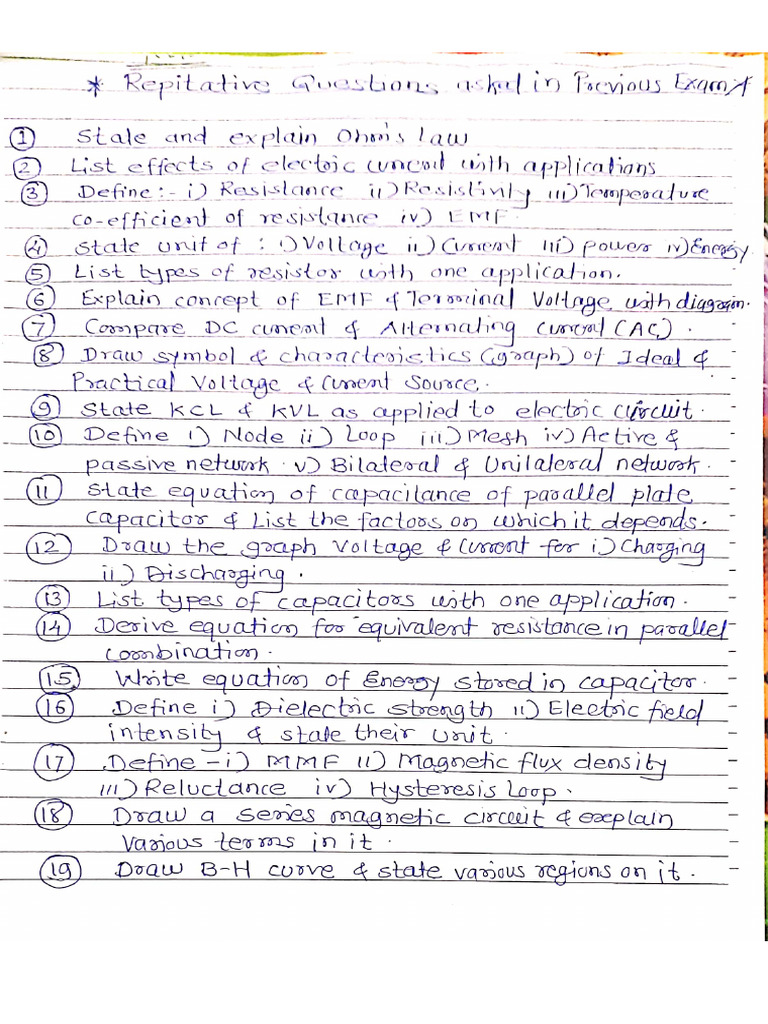 * Repitative Questions asked in Previous Exam *
① State and explain Ohm's law
② List effects of electric current with applications
③ Define:- i) Resistance ii) Resistivity iii) Temperature
co-efficient of resistance iv) EMF
④ State unit of : i) Voltage ii) Current iii) power iv) Energy
⑤ List types of resistor with one application.
⑥ Explain concept of EMF & Terminal Voltage with diagram.
⑦ Compare DC current & Alternating Current (AC).
⑧ Draw symbol & characteristics (graph) of Ideal &
Practical Voltage & Current Source.
⑨ State KCL & KVL as applied to electric circuit.
⑩ Define i) Node ii) Loop iii) Mesh iv) Active &
passive network v) Bilateral & Unilateral network.
⑪ State equation of capacitance of parallel plate
capacitor & List the factors on which it depends.
⑫ Draw the graph Voltage & Current for i) Charging
ii) Discharging.
⑬ List types of capacitors with one application.
⑭ Derive equation for equivalent resistance in parallel
combination.
⑮ Write equation of Energy stored in capacitor.
⑯ Define i) Dielectric strength ii) Electric field
intensity & state their unit.
⑰ Define - i) MMF ii) Magnetic flux density
iii) Reluctance iv) Hysteresis Loop.
⑱ Draw a series magnetic circuit & explain
various terms in it.
⑲ Draw B-H curve & state various regions on it.